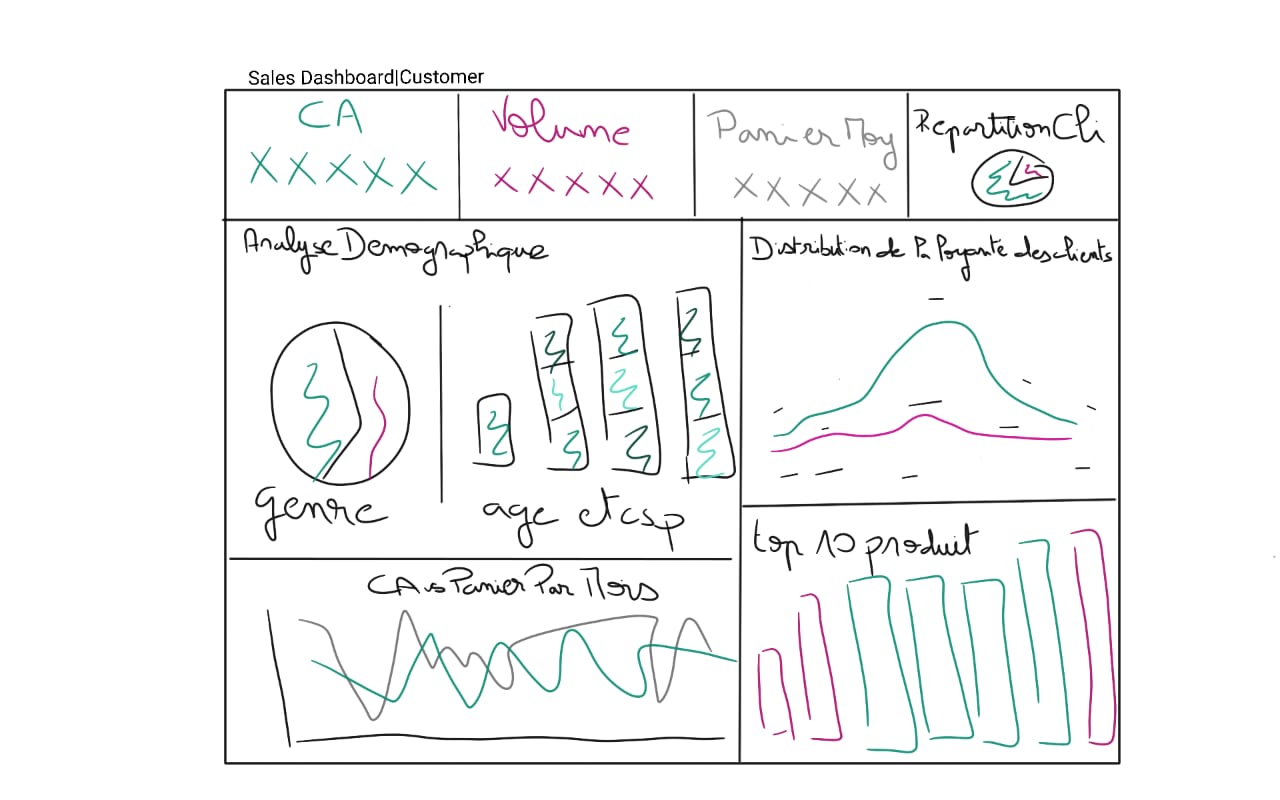 Sales Dashboard|Customer
CA
XXXXX
Volume
XXXXX
Panier Moy
XXXXX
Repartition Cli
Analyse Demographique
genre
age et csp
Distribution de la loyauté des clients
CA vs Panier Par Mois
top 10 produit